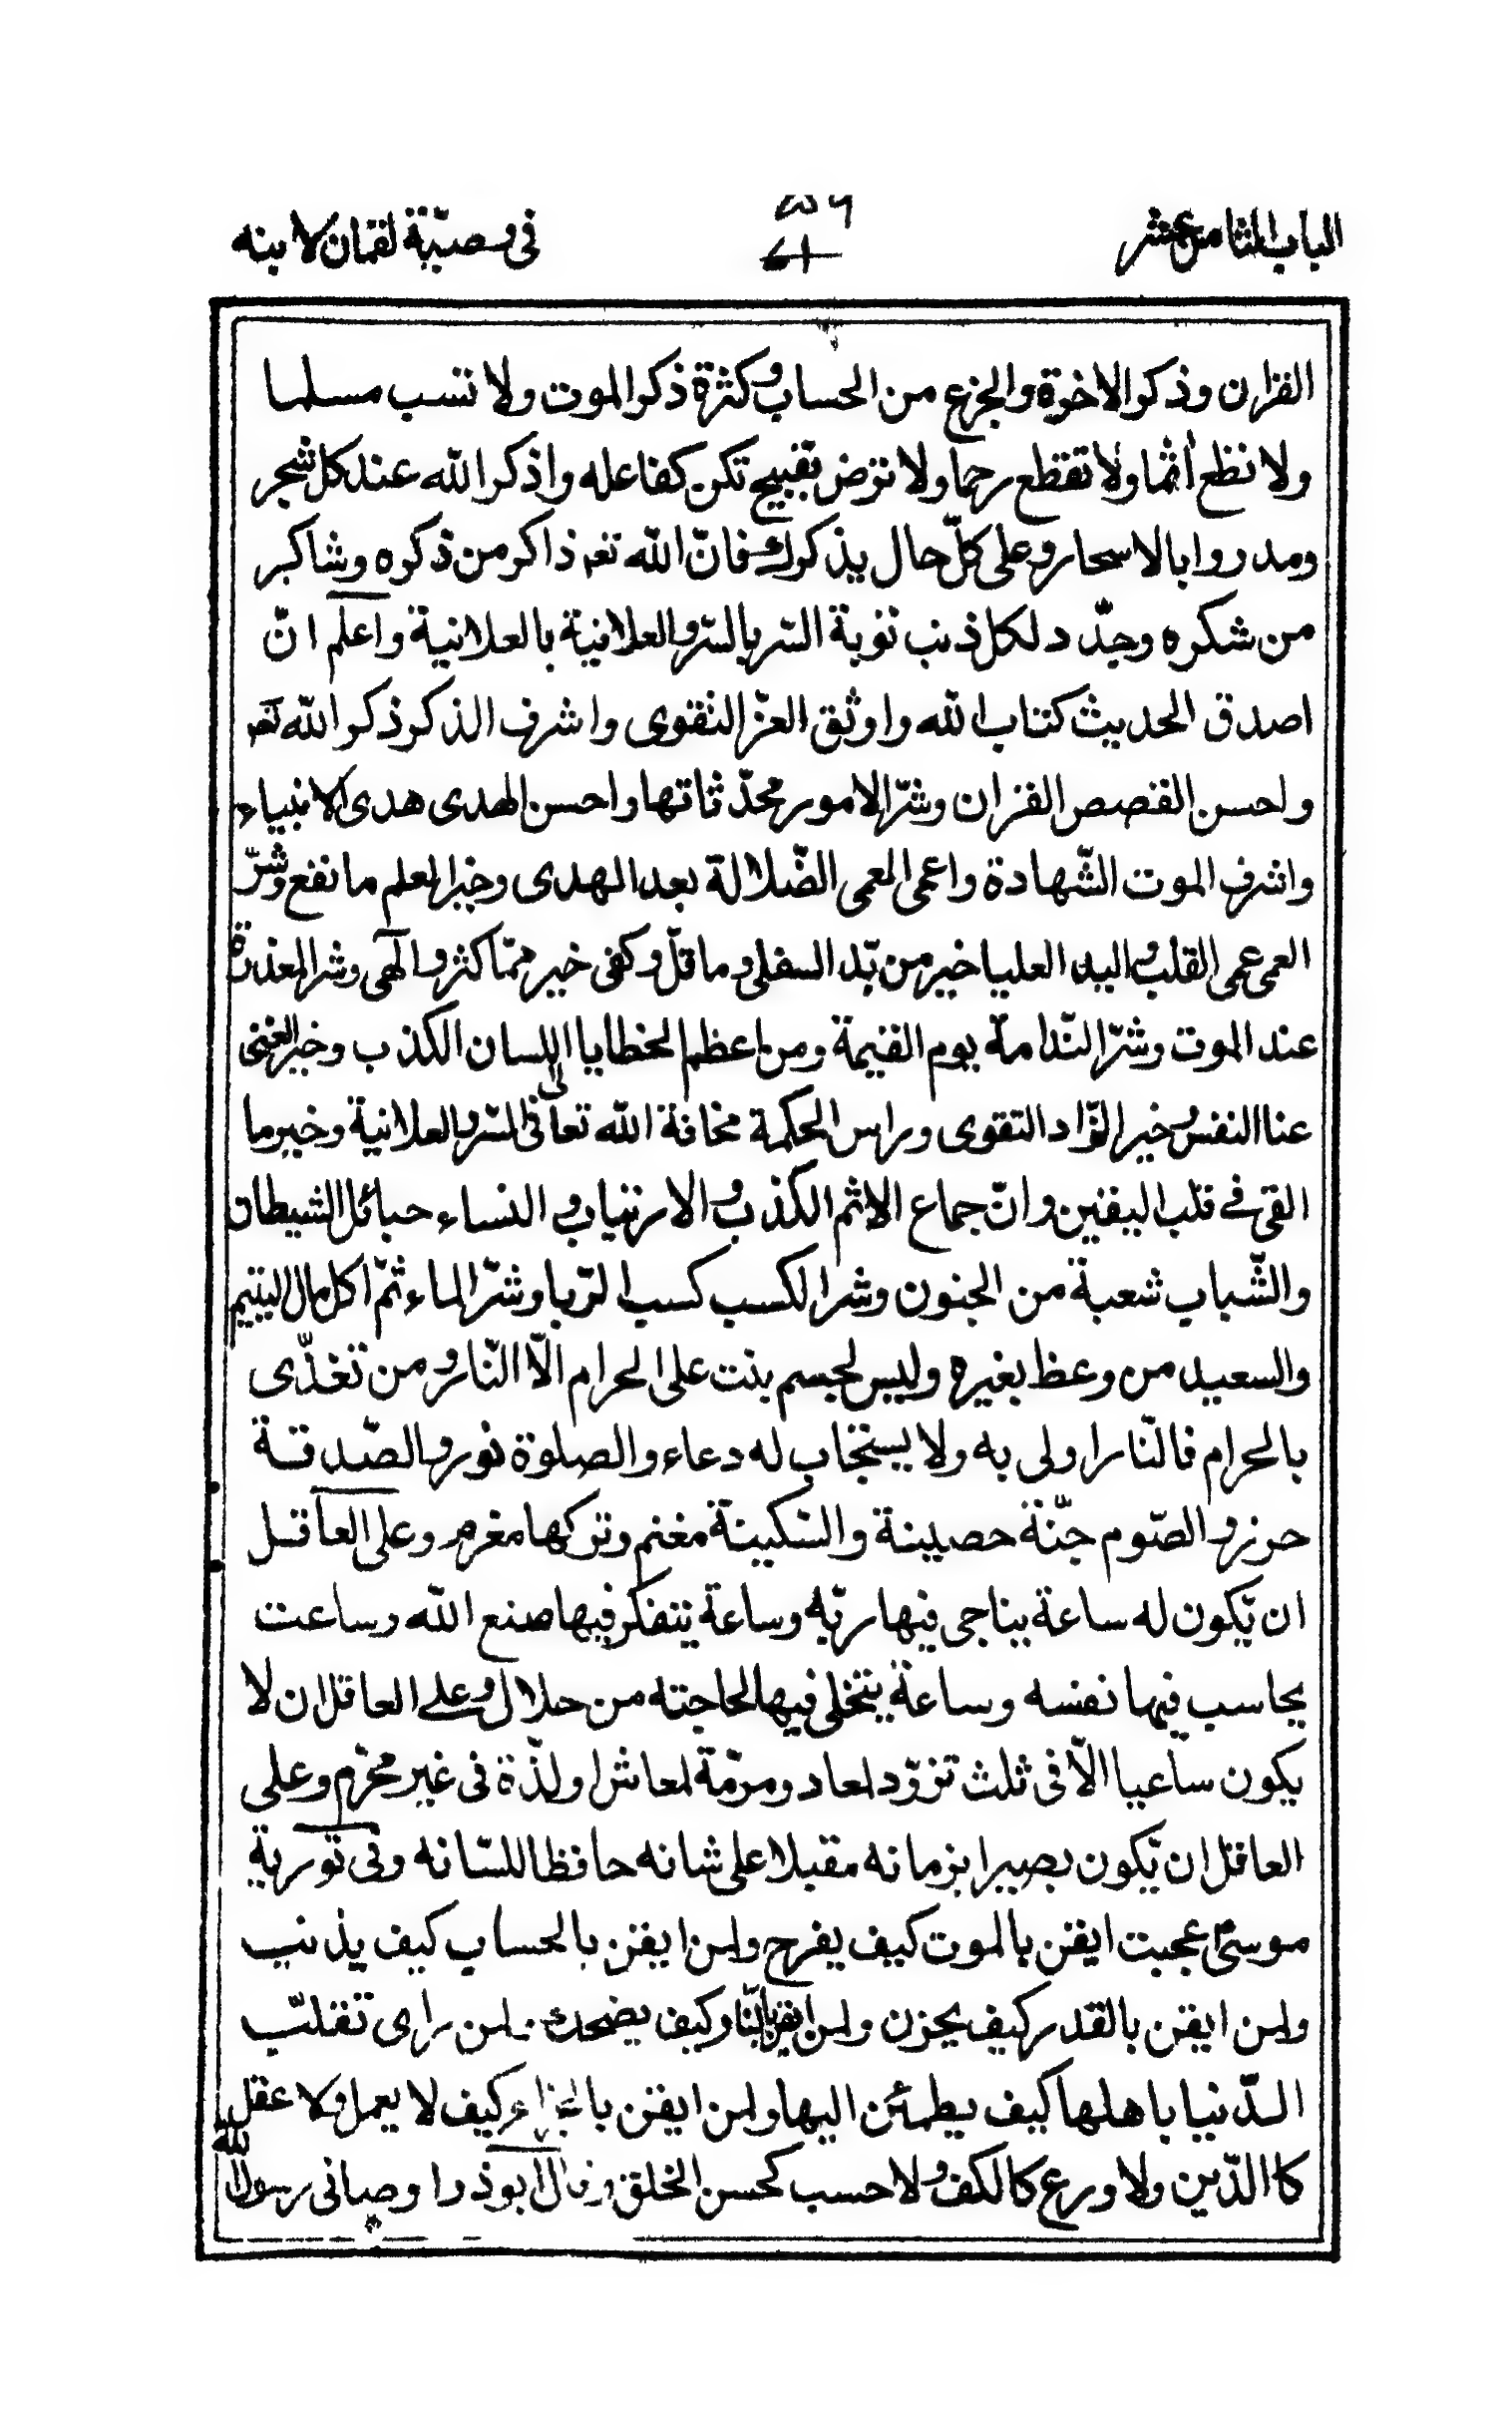 الباب الثامن عشر
٥٦
61
فى وصيّة لقمان لابنه
القران وذكر الاخرة والجزع من الحساب وكثرة ذكر الموت ولا تسب مسلما
ولا تطع اثما ولا تقطع رحما ولا ترض بقبيح تكن كفاعله واذكر الله عند كل شجر
ومدر وا بالاسحار وعلى كلّ حال يذكرك فانّ الله تعه ذاكر من ذكره وشاكر
من شكره وجدّد لكل ذنب توبة السّر بالسّر والعلانية بالعلانية واعلم انّ
اصدق الحديث كتاب الله واوثق العزّ التقوى واشرف الذكر ذكر الله تعه
واحسن القصص القران وشرّ الامور محدّثاتها واحسن الهدى هدى الانبياء
واشرف الموت الشّهادة واعمى العمى الضّلالة بعد الهدى وخير العلم ما نفع وشرّ
العمى عمى القلب واليد العليا خير من يّد السفلى وما قلّ وكفى خير ممّا كثر والهى وشر المعذرة
عند الموت وشرّ النّدامة يوم القيمة ومن اعظم الخطايا اللسان الكذب وخير الغنى
عنا النفس وخير الزّاد التقوى وراس الحكمة مخافة الله تعالى فى السّر والعلانية وخير ما
القى فى قلب اليقين وانّ جماع الاثم الكذب والارتياب والنساء حبائل الشيطان
والشّباب شعبة من الجنون وشر الكسب كسب الرّبا وشرّ الماء ثمّ اكل مال اليتيم
والسعيد من وعظ بغيره وليس لجسم بنت على الحرام الّا النّار ومن تغذّى
بالحرام فالنّار اولى به ولا يستجاب له دعاء والصلوة نور والصّدقة
حرز والصّوم جنّة حصينة والسّكينة مغنم وتركها مغرم وعلى العاقل
ان يّكون له ساعة يناجى فيها ربّه وساعة يتفكر فيها صنع الله وساعت
يحاسب فيها نفسه وساعة يتخلى فيها لحاجته من حلال وعلى العاقل ان لا
يكون ساعيا الّا فى ثلث تزوّد لمعاد ومرمّة لمعاش اولذّة فى غير محرّم وعلى
العاقل ان يّكون بصيرا بزمانه مقبلا على شانه حافظا للسّانه وفى تورية
موسىٰ عجبت ايقن بالموت كيف يفرح ولمن ايقن بالحساب كيف يذنب
ولمن ايقن بالقدر كيف يحزن ولمن ايقن بالنّار كيف يضحك ولمن راى تقلّب
الدّنيا باهلها كيف يطمئن اليها ولمن ايقن بالجزاء كيف لا يعمل ولا عقل
كاالدّين ولا ورع كالكف ولا حسب كحسن الخلق وقال ابوذر اوصانى رسول الله